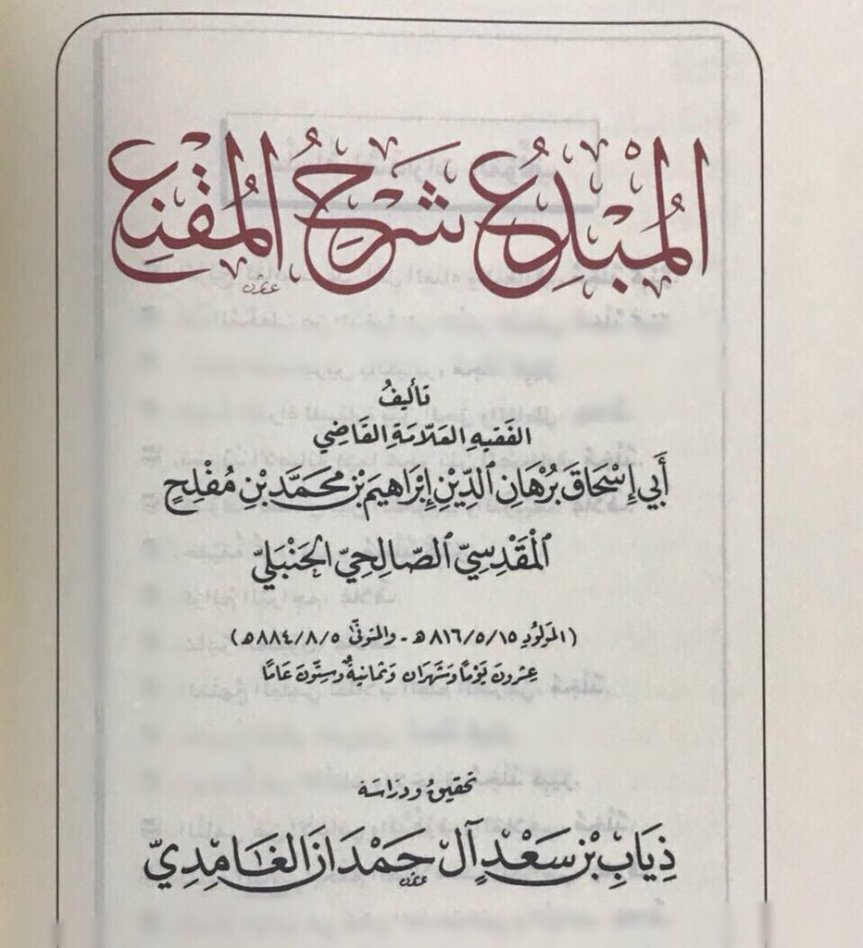 المُبْدِعُ شَرْحُ المُقْنِعِ
تأليفُ
الفَقيهِ العَلّامَةِ القَاضِي
أَبِي إِسْحَاقَ بُرْهَانِ الدِّيْنِ إِبْرَاهِيمَ بْنِ مُحَمَّدِ بْنِ مُفْلِحٍ
المَقْدِسِيِّ الصَّالِحِيِّ الحَنْبَلِيِّ
(المَولُودِ ٨١٦/٥/١٥هـ - والمتوفَّى ٨٨٤/٨/٥هـ)
عِشرُونَ يَوْمًا وَشَهْرَان وَثمانيةٌ وسِتُّونَ عَامًا
تحقيقُ ودِرَاسَة
ذِيَابِ بْنِ سَعْدٍ آلِ حَمْدَانَ الغَامِدِيِّ